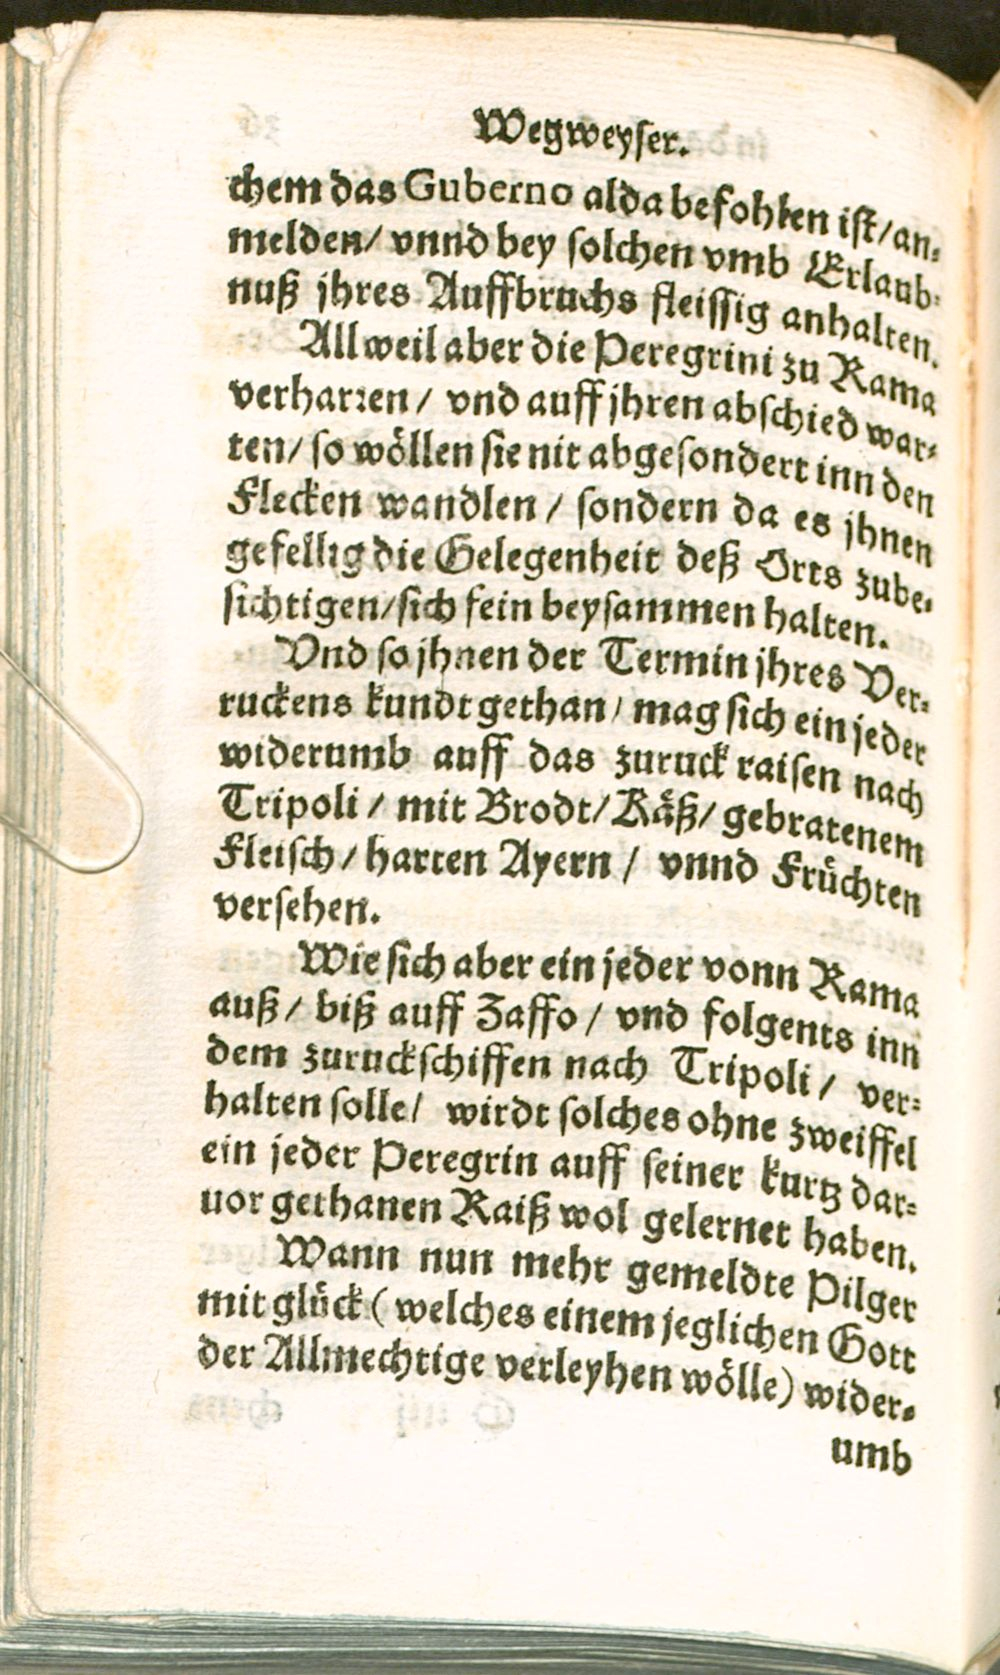 Wegweyser.
chem das Guberno alda befohlen ist/an-
melden/ vnnd bey solchen vmb Erlaub-
nuß jhres Auffbruchs fleissig anhalten.
Allweil aber die Peregrini zu Rama
verharren/ vnd auff jhren abschied war-
ten/ so wöllen sie nit abgesondert inn den
Flecken wandlen / sondern da es jhnen
gefellig die Gelegenheit deß Orts zube-
sichtigen/sich fein beysammen halten.
Vnd so jhnen der Termin jhres Ver-
ruckens kundt gethan/ mag sich ein jeder
widerumb auff das zuruck raisen nach
Tripoli / mit Brodt/ Käß/ gebratenem
Fleisch / harten Ayern / vnnd Früchten
versehen.
Wie sich aber ein jeder vonn Rama
auß / biß auff Zaffo / vnd folgents inn
dem zuruckschiffen nach Tripoli / ver-
halten solle/ wirdt solches ohne zweiffel
ein jeder Peregrin auff seiner kurtz dar-
uor gethanen Raiß wol gelernet haben.
Wann nun mehr gemeldte Pilger
mit glück ( welches einem jeglichen Gott
der Allmechtige verleyhen wölle) wider-
umb